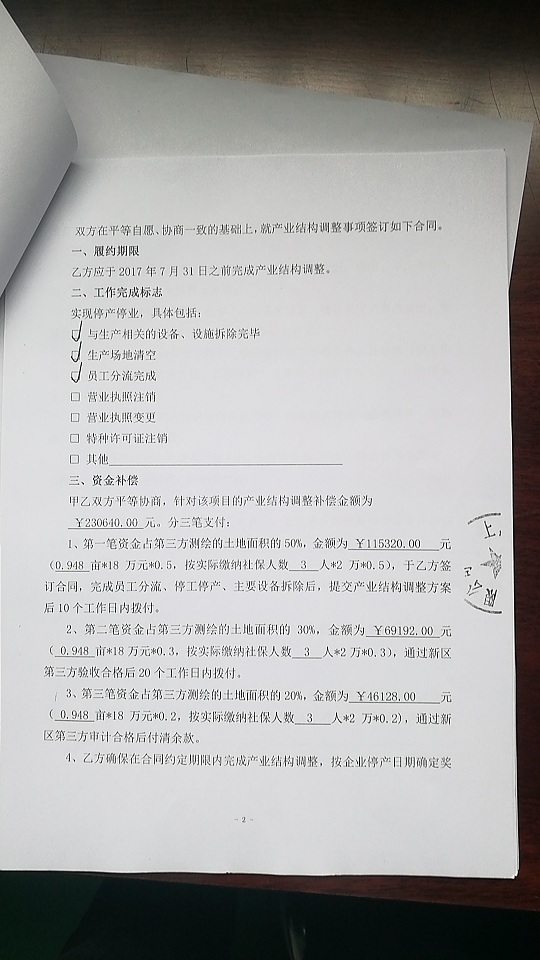 双方在平等自愿、协商一致的基础上,就产业结构调整事项签订如下合同。
一、履约期限
乙方应于 2017 年 7 月 31 日之前完成产业结构调整。
二、工作完成标志
实现停产停业，具体包括：
☑ 与生产相关的设备、设施拆除完毕
☑ 生产场地清空
☑ 员工分流完成
□ 营业执照注销
□ 营业执照变更
□ 特种许可证注销
□ 其他
三、资金补偿
甲乙双方平等协商，针对该项目的产业结构调整补偿金额为
￥230640.00 元。分三笔支付：
1、第一笔资金占第三方测绘的土地面积的 50%，金额为 ￥115320.00 元
（0.948 亩*18 万元*0.5，按实际缴纳社保人数 3 人*2 万*0.5），于乙方签
订合同，完成员工分流、停工停产、主要设备拆除后，提交产业结构调整方案
后 10 个工作日内拨付。
2、第二笔资金占第三方测绘的土地面积的 30%，金额为 ￥69192.00 元
（ 0.948 亩*18 万元*0.3，按实际缴纳社保人数 3 人*2 万*0.3），通过新区
第三方验收合格后 20 个工作日内拨付。
3、第三笔资金占第三方测绘的土地面积的 20%，金额为 ￥46128.00 元
（ 0.948 亩*18 万元*0.2，按实际缴纳社保人数 3 人*2 万*0.2），通过新
区第三方审计合格后付清余款。
4、乙方确保在合同约定期限内完成产业结构调整，按企业停产日期确定奖
- 2 -
上
限公